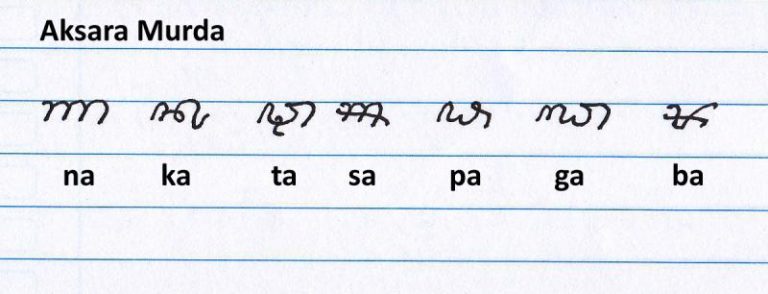 Aksara Murda
ꦟ ꦑ ꦡ ꦯ ꦦ ꦓ ꦨ
na ka ta sa pa ga ba